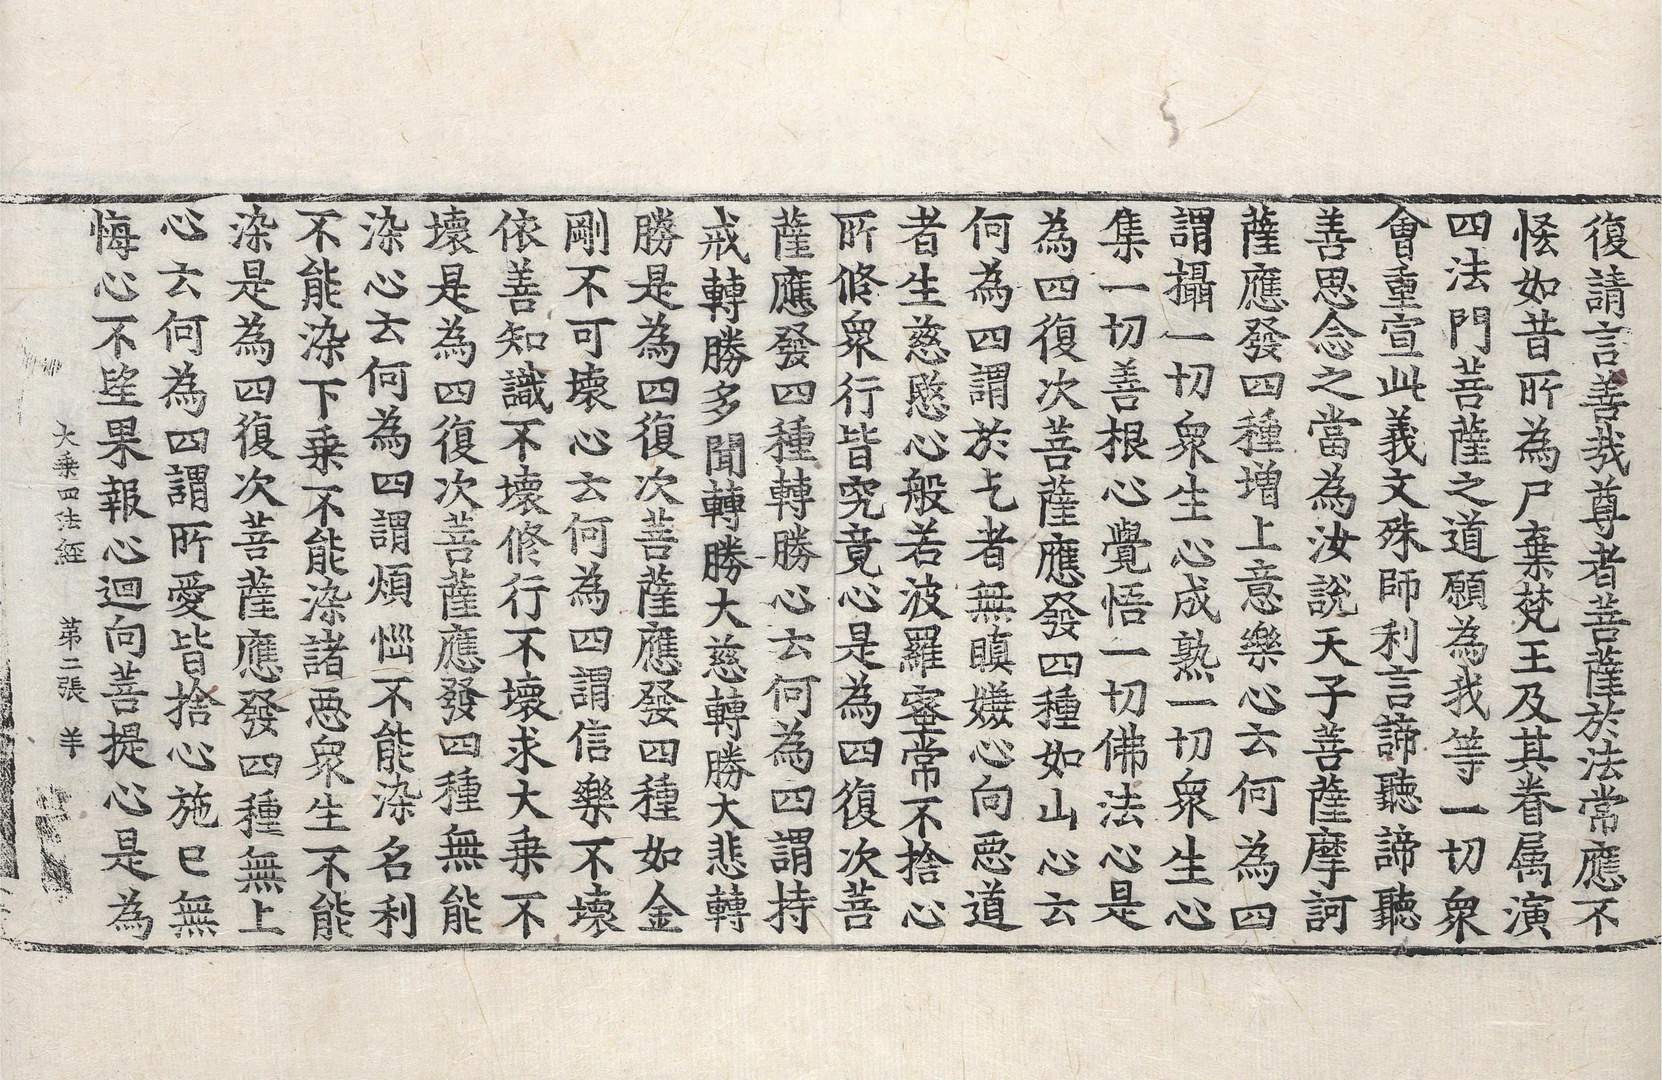 復請言善㢤尊者菩薩於法常應不
恡如昔所為尸棄梵王及其眷属演
四法門菩薩之道願為我等一切衆
會重宣此義文殊師利言諦聽諦聽
善思念之當為汝說天子菩薩摩訶
薩應發四種增上意樂心云何為四
謂攝一切衆生心成熟一切衆生心
集一切善根心覺悟一切佛法心是
為四復次菩薩應發四種如山心云
何為四謂於乞者無瞋嫌心向惡道
者生慈愍心般若波羅蜜常不捨心
所修衆行皆究竟心是為四復次菩
薩應發四種轉勝心云何為四謂持
戒轉勝多聞轉勝大慈轉勝大悲轉
勝是為四復次菩薩應發四種如金
剛不可壞心云何為四謂信樂不壞
依善知識不壞修行不壞求大乗不
壞是為四復次菩薩應發四種無能
染心云何為四謂煩惱不能染名利
不能染下乗不能染諸惡衆生不能
染是為四復次菩薩應發四種無上
心云何為四謂所愛皆捨心施已無
悔心不望果報心迴向菩提心是為
大乗四法經　第二張　羊